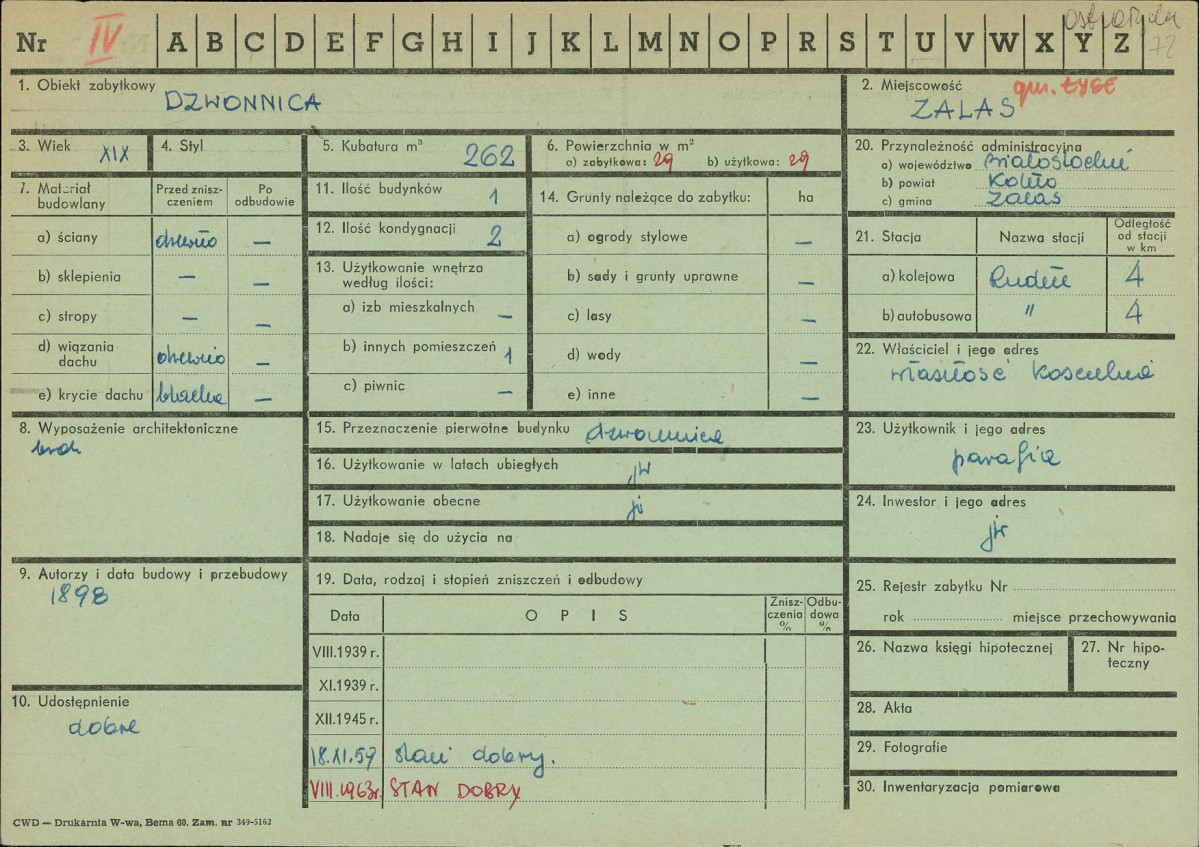 Nr IV A B C D E F G H I J K L M N O P R S T U V W X Y Z 72
1. Obiekt zabytkowy DZWONNICA
2. Miejscowość gm. ŁYSE
ZALAS
3. Wiek XIX
4. Styl
5. Kubatura m³ 262
6. Powierzchnia w m²
a) zabytkowa: 29 b) użytkowa: 29
7. Materiał budowlany
Przed zniszczeniem
Po odbudowie
a) ściany drewno —
b) sklepienia — —
c) stropy — —
d) wiązania dachu drewno —
e) krycie dachu blacha —
8. Wyposażenie architektoniczne
brak
9. Autorzy i data budowy i przebudowy
1898
10. Udostępnienie
dobre
11. Ilość budynków 1
12. Ilość kondygnacji 2
13. Użytkowanie wnętrza
według ilości:
a) izb mieszkalnych —
b) innych pomieszczeń 1
c) piwnic —
14. Grunty należące do zabytku: ha
a) ogrody stylowe —
b) sady i grunty uprawne —
c) lasy —
d) wody —
e) inne —
15. Przeznaczenie pierwotne budynku dzwonnica
16. Użytkowanie w latach ubiegłych jw
17. Użytkowanie obecne jw
18. Nadaje się do użycia na
19. Data, rodzaj i stopień zniszczeń i odbudowy
Data OPIS Zniszczenia % Odbudowa %
VIII.1939 r.
XI.1939 r.
XII.1945 r.
18.XI.59 stan dobry.
VIII.1963r. STAN DOBRY
20. Przynależność administracyjna
a) województwo białostockie
b) powiat Kolno
c) gmina Zalas
21. Stacja Nazwa stacji Odległość od stacji w km
a) kolejowa 4
b) autobusowa " 4
22. Właściciel i jego adres
własność kościelna
23. Użytkownik i jego adres
parafia
24. Inwestor i jego adres
jw
25. Rejestr zabytku Nr
rok miejsce przechowywania
26. Nazwa księgi hipotecznej
27. Nr hipoteczny
28. Akta
29. Fotografie
30. Inwentaryzacja pomiarowa
CWD — Drukarnia W-wa, Bema 60. Zam. nr 349-5162